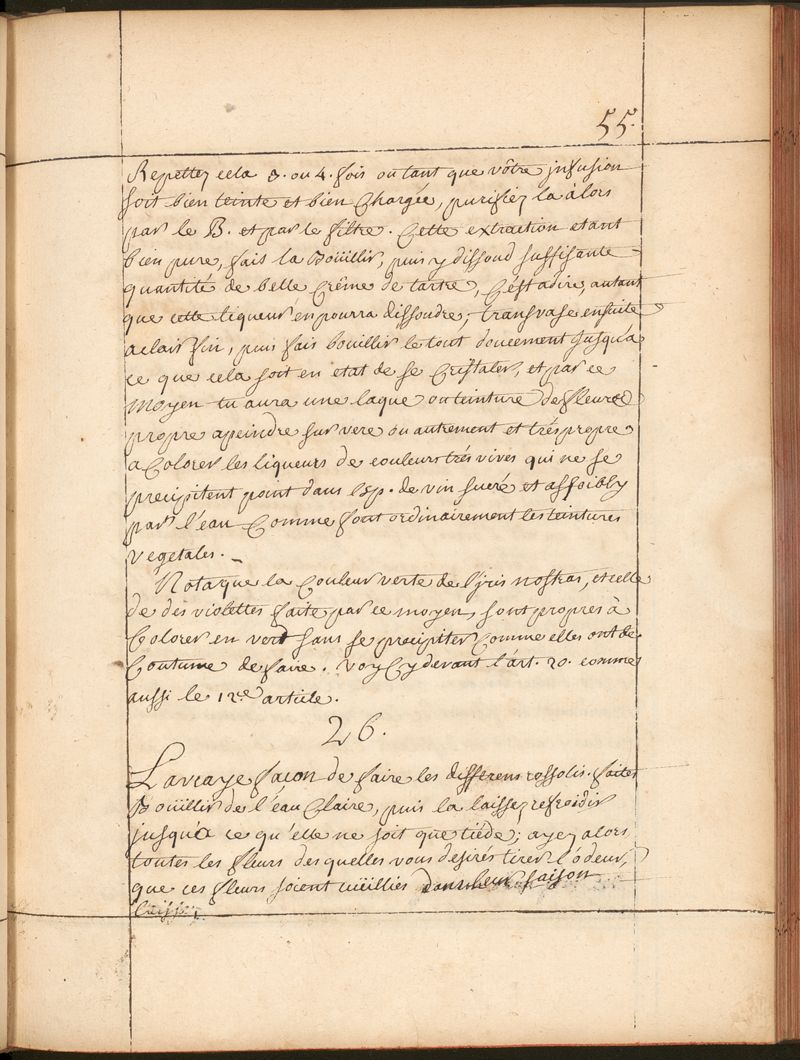 55.
Repettez cela 3. ou 4. fois ou tant que vôtre jnfusion
soit bien teinte et bien Chargée, purifiez la àlors
par le B. et par le filtre. Cette extraction etant
bien pure, fais la Boüillir, puis y dissoud suffisante
quantité de belle Crême de tartre, C'ést adire, autant
que cette liqueur en pourra dissoudre, transvase ensuite
aclair fin, puis fais bouillir le tout doucement Jusqu'a
ce que cela soit en etat de se Cristaler, et par ce
moyen tu aura une laque ou teinture de fleurs
propre apeindre sur vere ou autrement et trés propre
a Colorer les liqueurs de couleurs trés vives qui ne se
precipitent point dans l'esp. de vin sucré et affoibly
par l'eau Comme font ordinairement les teintures
vegetales.
Nota que la Couleur verte de l'jris nostras, et celle
de des violettes faite par ce moyen, sont propres à
Colorer en verd sans se precipiter Comme elles ont de
Coutume de faire. voy Cy devant l'art. 20. comme
aussi le 12.e article.
26.
La vraye façon de faire les differens rossolis. faites
Boüillir de l'eau Claire, puis la laissez refroidir
jusqu'a ce qu'elle ne soit que tiéde; ayez alors
toutes les fleurs des quelles vous desirés tirer l'ôdeur,
que ces fleurs soient cüeillies dans leur saison
laissez